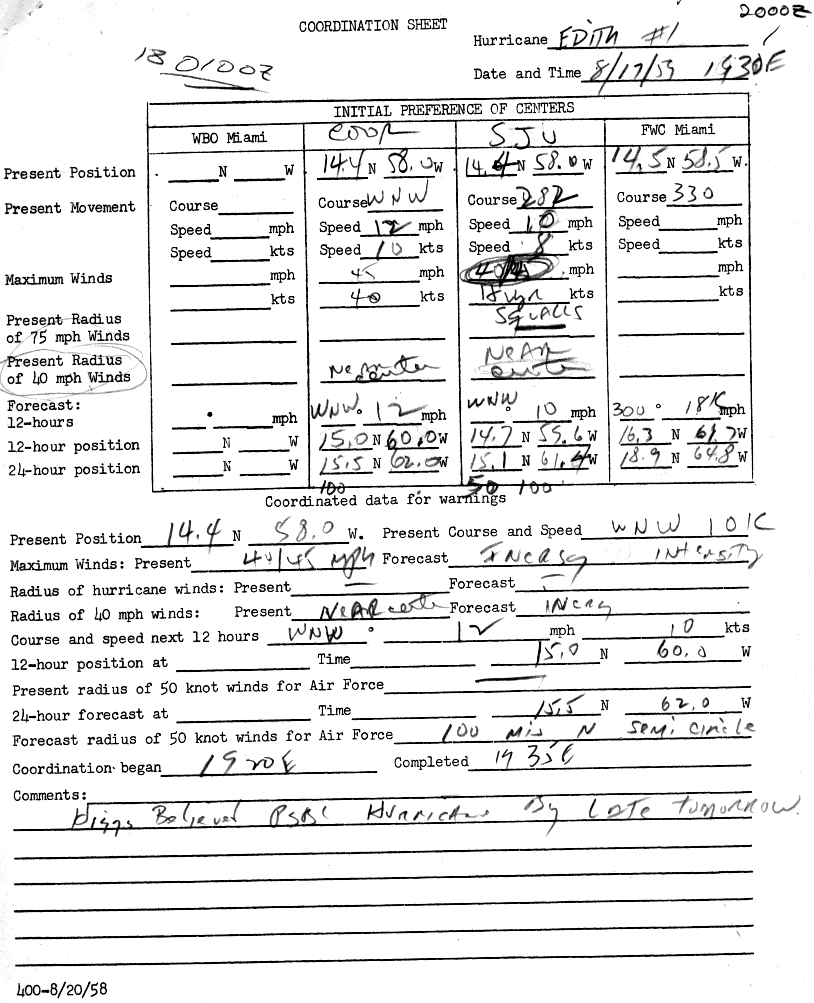 2000Z
COORDINATION SHEET
Hurricane EDITH #1
18 0100Z
Date and Time 8/17/59 1930E
INITIAL PREFERENCE OF CENTERS
WBO Miami COOP SJU FWC Miami
Present Position ____N ____W 14.4 N 58.0 W 14.4 N 58.0 W 14.5 N 58.5 W.
Present Movement Course____ Course WNW Course 282 Course 330
Speed____mph Speed 12 mph Speed 10 mph Speed____mph
Speed____kts Speed 10 kts Speed 8 kts Speed____kts
Maximum Winds ____mph 45 mph 40/45 mph ____mph
____kts 40 kts kts ____kts
Present Radius SQUALLS
of 75 mph Winds
Present Radius NEAR
of 40 mph Winds Near center center
Forecast:
12-hours ____° ____mph WNW ° 12 mph WNW ° 10 mph 300 ° 18K mph
12-hour position N W 15.0 N 60.0 W 14.7 N 59.6 W 16.3 N 61.7 W
24-hour position N W 15.5 N 62.0 W 15.1 N 61.4 W 18.9 N 64.8 W
100 50 100
Coordinated data for warnings
Present Position 14.4 N 58.0 W. Present Course and Speed WNW 10K
Maximum Winds: Present 40/45 MPH Forecast Incrsg INTENSITY
Radius of hurricane winds: Present — Forecast —
Radius of 40 mph winds: Present NEAR center Forecast INCRG
Course and speed next 12 hours WNW ° 12 mph 10 kts
12-hour position at ____ Time____ 15.0 N 60.0 W
Present radius of 50 knot winds for Air Force ____
24-hour forecast at ____ Time____ 15.5 N 62.0 W
Forecast radius of 50 knot winds for Air Force 100 Mis N Semi circle
Coordination began 1920E Completed 1935E
Comments:
Higgs Believed PSBL Hurricane By Late Tomorrow.
400-8/20/58